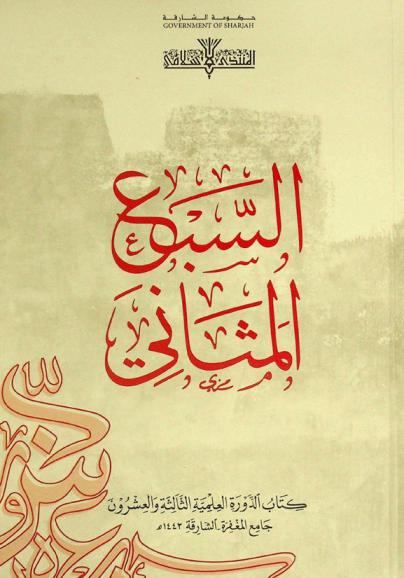 حكومة الشارقة
GOVERNMENT OF SHARJAH
المنتدى الإسلامي
السَّبْعُ
المَثَانِي
كِتَابُ الدَّوْرَةِ العِلْمِيَّةِ الثَّالِثَةِ وَالعِشْرُونَ
جَامِع المَغْفِرَة - الشَّارِقَة ١٤٤٣هـ